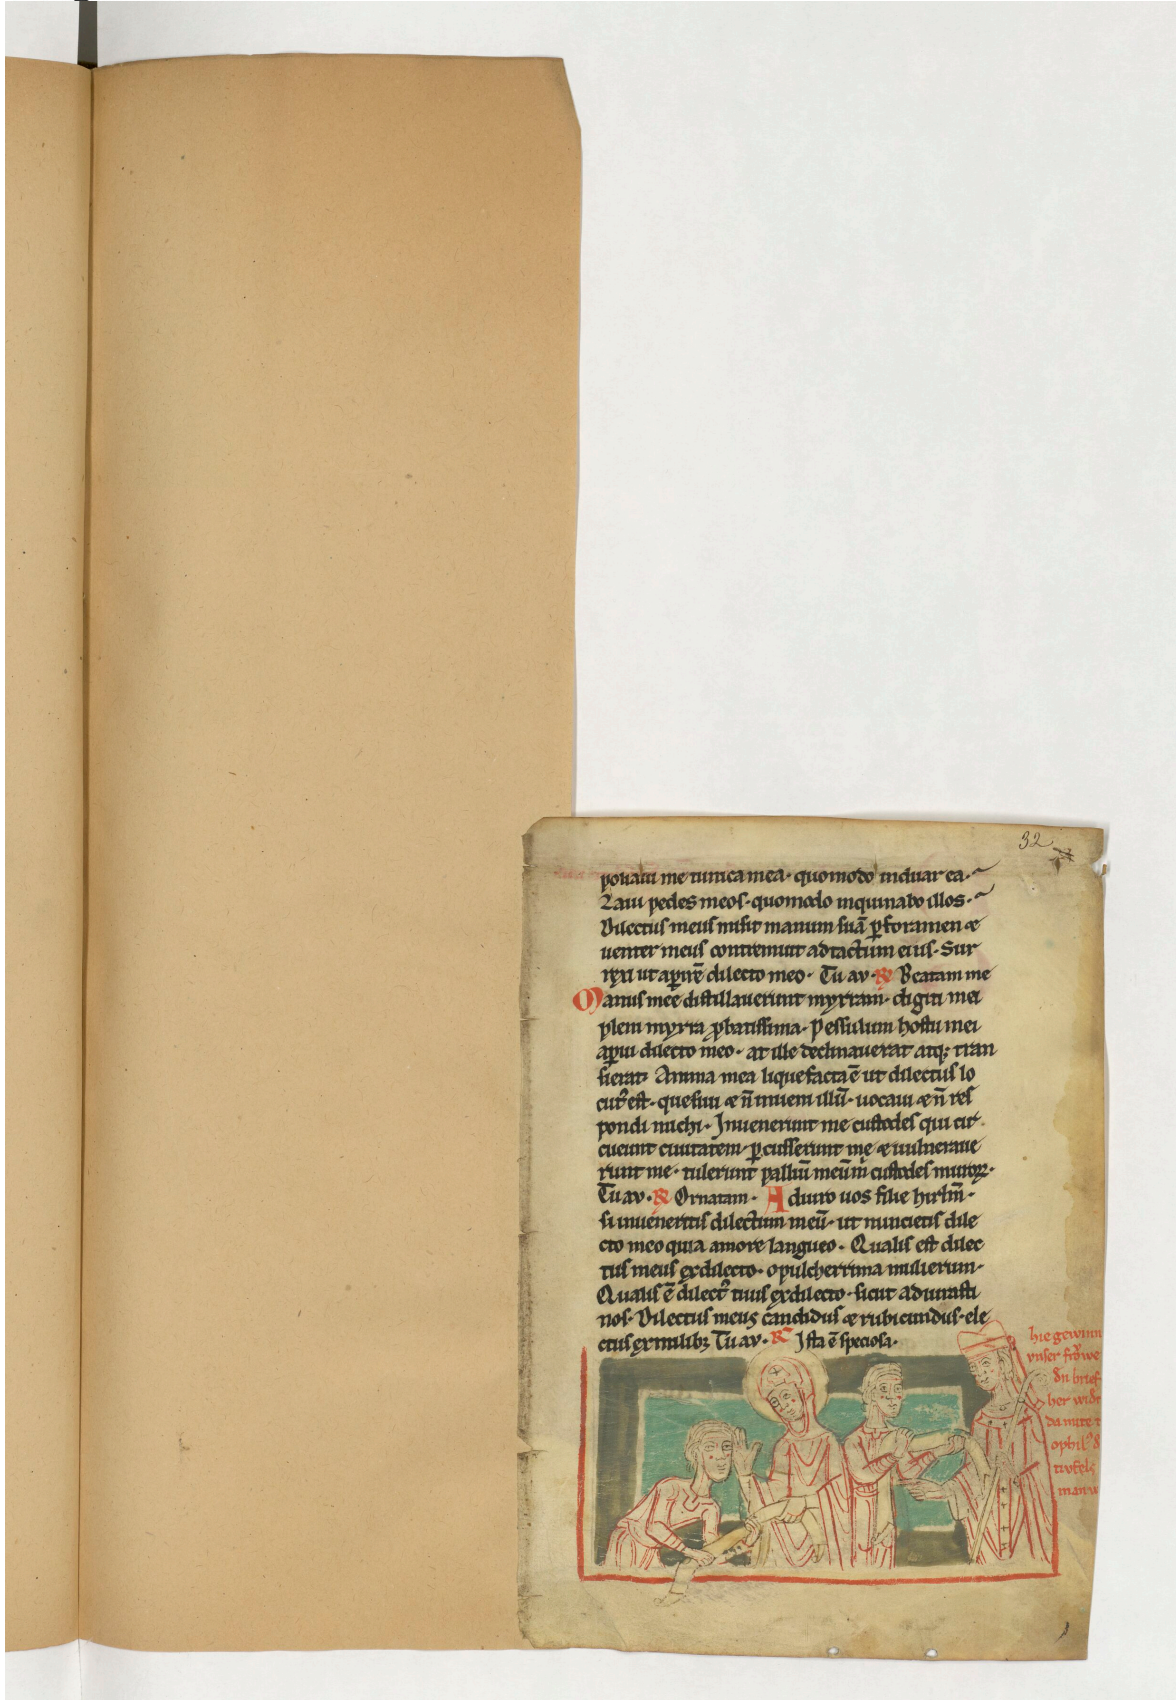 32
poliaui me tunica mea · quomodo induar ea ·
Laui pedes meos · quomodo inquinabo illos ·
Dilectus meus misit manum suā p̱ foramen &
uenter meus contremuit ad tactum eius · Sur
rexi ut aꝑirē dilecto meo · Tu av · ℟ Beatam me
Manus mee distillauerunt myrram · digiti mei
pleni myrra ꝓbatissima · Pessulum hostii mei
aꝑui dilecto meo · at ille declinauerat atq; tran
sierat · Anima mea liquefacta ē ut dilectus lo
cut᷒ est · quesiui & n̄ inueni illū · uocaui & n̄ res
pondi michi · Inuenerunt me custodes qui cir
cueunt ciuitatem · ꝑcusserunt me & uulneraue
runt me · tulerunt pallium meūm custodes muroꝝ ·
Tu av · ℟ Ornatam · Adiuro uos filie hirlm̄ ·
si inueneritis dilectum meū · ut nuncietis dile
cto meo quia amore langueo · Qualis est dilec
tus meus ex dilecto · o pulcherrima mulierum ·
Qualis ē dilect᷒ tuus ex dilecto · sicut adiurasti
nos · Dilectus meus candidus & rubicundus · ele
ctus ex milibꝫ Tu av · ℟ Ista ē speciosa ·
hie gewinn
vnser frowe
dn brief
her wid
da mite t
ophil᷒ d
tivfels
man w